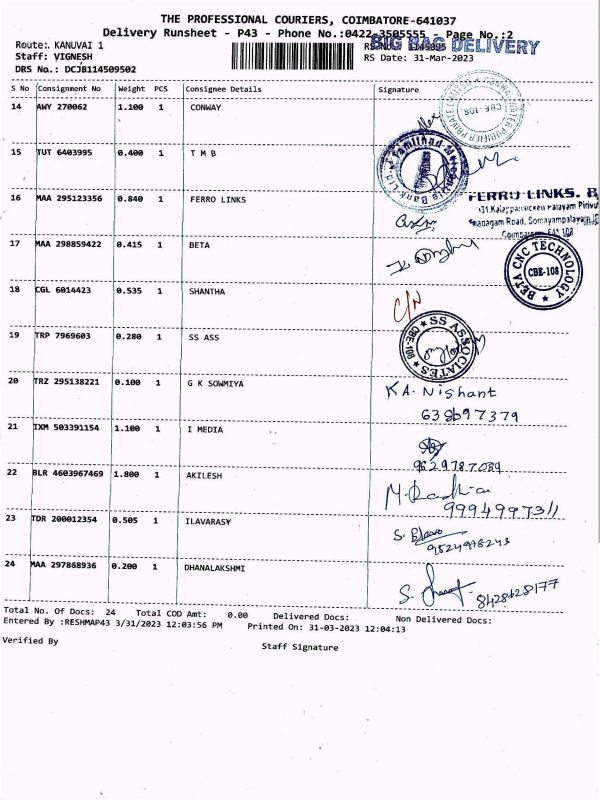 THE PROFESSIONAL COURIERS, COIMBATORE-641037
Delivery Runsheet - P43 - Phone No.:0422-3505555 - Page No.:2
BIG BAG DELIVERY
Route: KANUVAI 1
Staff: VIGNESH
RS Date: 31-Mar-2023
DRS No.: DCJB114509502
S No Consignment No Weight PCS Consignee Details Signature
14 AWY 270062 1.100 1 CONWAY
CBE-108
15 TUT 6403995 0.400 1 T M B
16 MAA 295123356 0.840 1 FERRO LINKS
FERRO LINKS.
Road, Somayampalayam,
17 MAA 298859422 0.415 1 BETA
BETA CNC TECHNOLOGY
CBE-108
18 CGL 6014423 0.535 1 SHANTHA
C/N
19 TRP 7969603 0.280 1 SS ASS
SS ASSOCIATES
CBE-108
20 TRZ 295138221 0.100 1 G K SOWMIYA
KA. Nishant
21 IXM 503391154 1.100 1 I MEDIA
9629787084
22 BLR 4603967469 1.800 1 AKILESH
M. Radhia
23 TDR 200012354 0.505 1 ILAVARASY
24 MAA 297868936 0.200 1 DHANALAKSHMI
8428428177
Total No. Of Docs: 24 Total COD Amt: 0.00 Delivered Docs: Non Delivered Docs:
Entered By :RESHMAP43 3/31/2023 12:03:56 PM Printed On: 31-03-2023 12:04:13
Verified By
Staff Signature